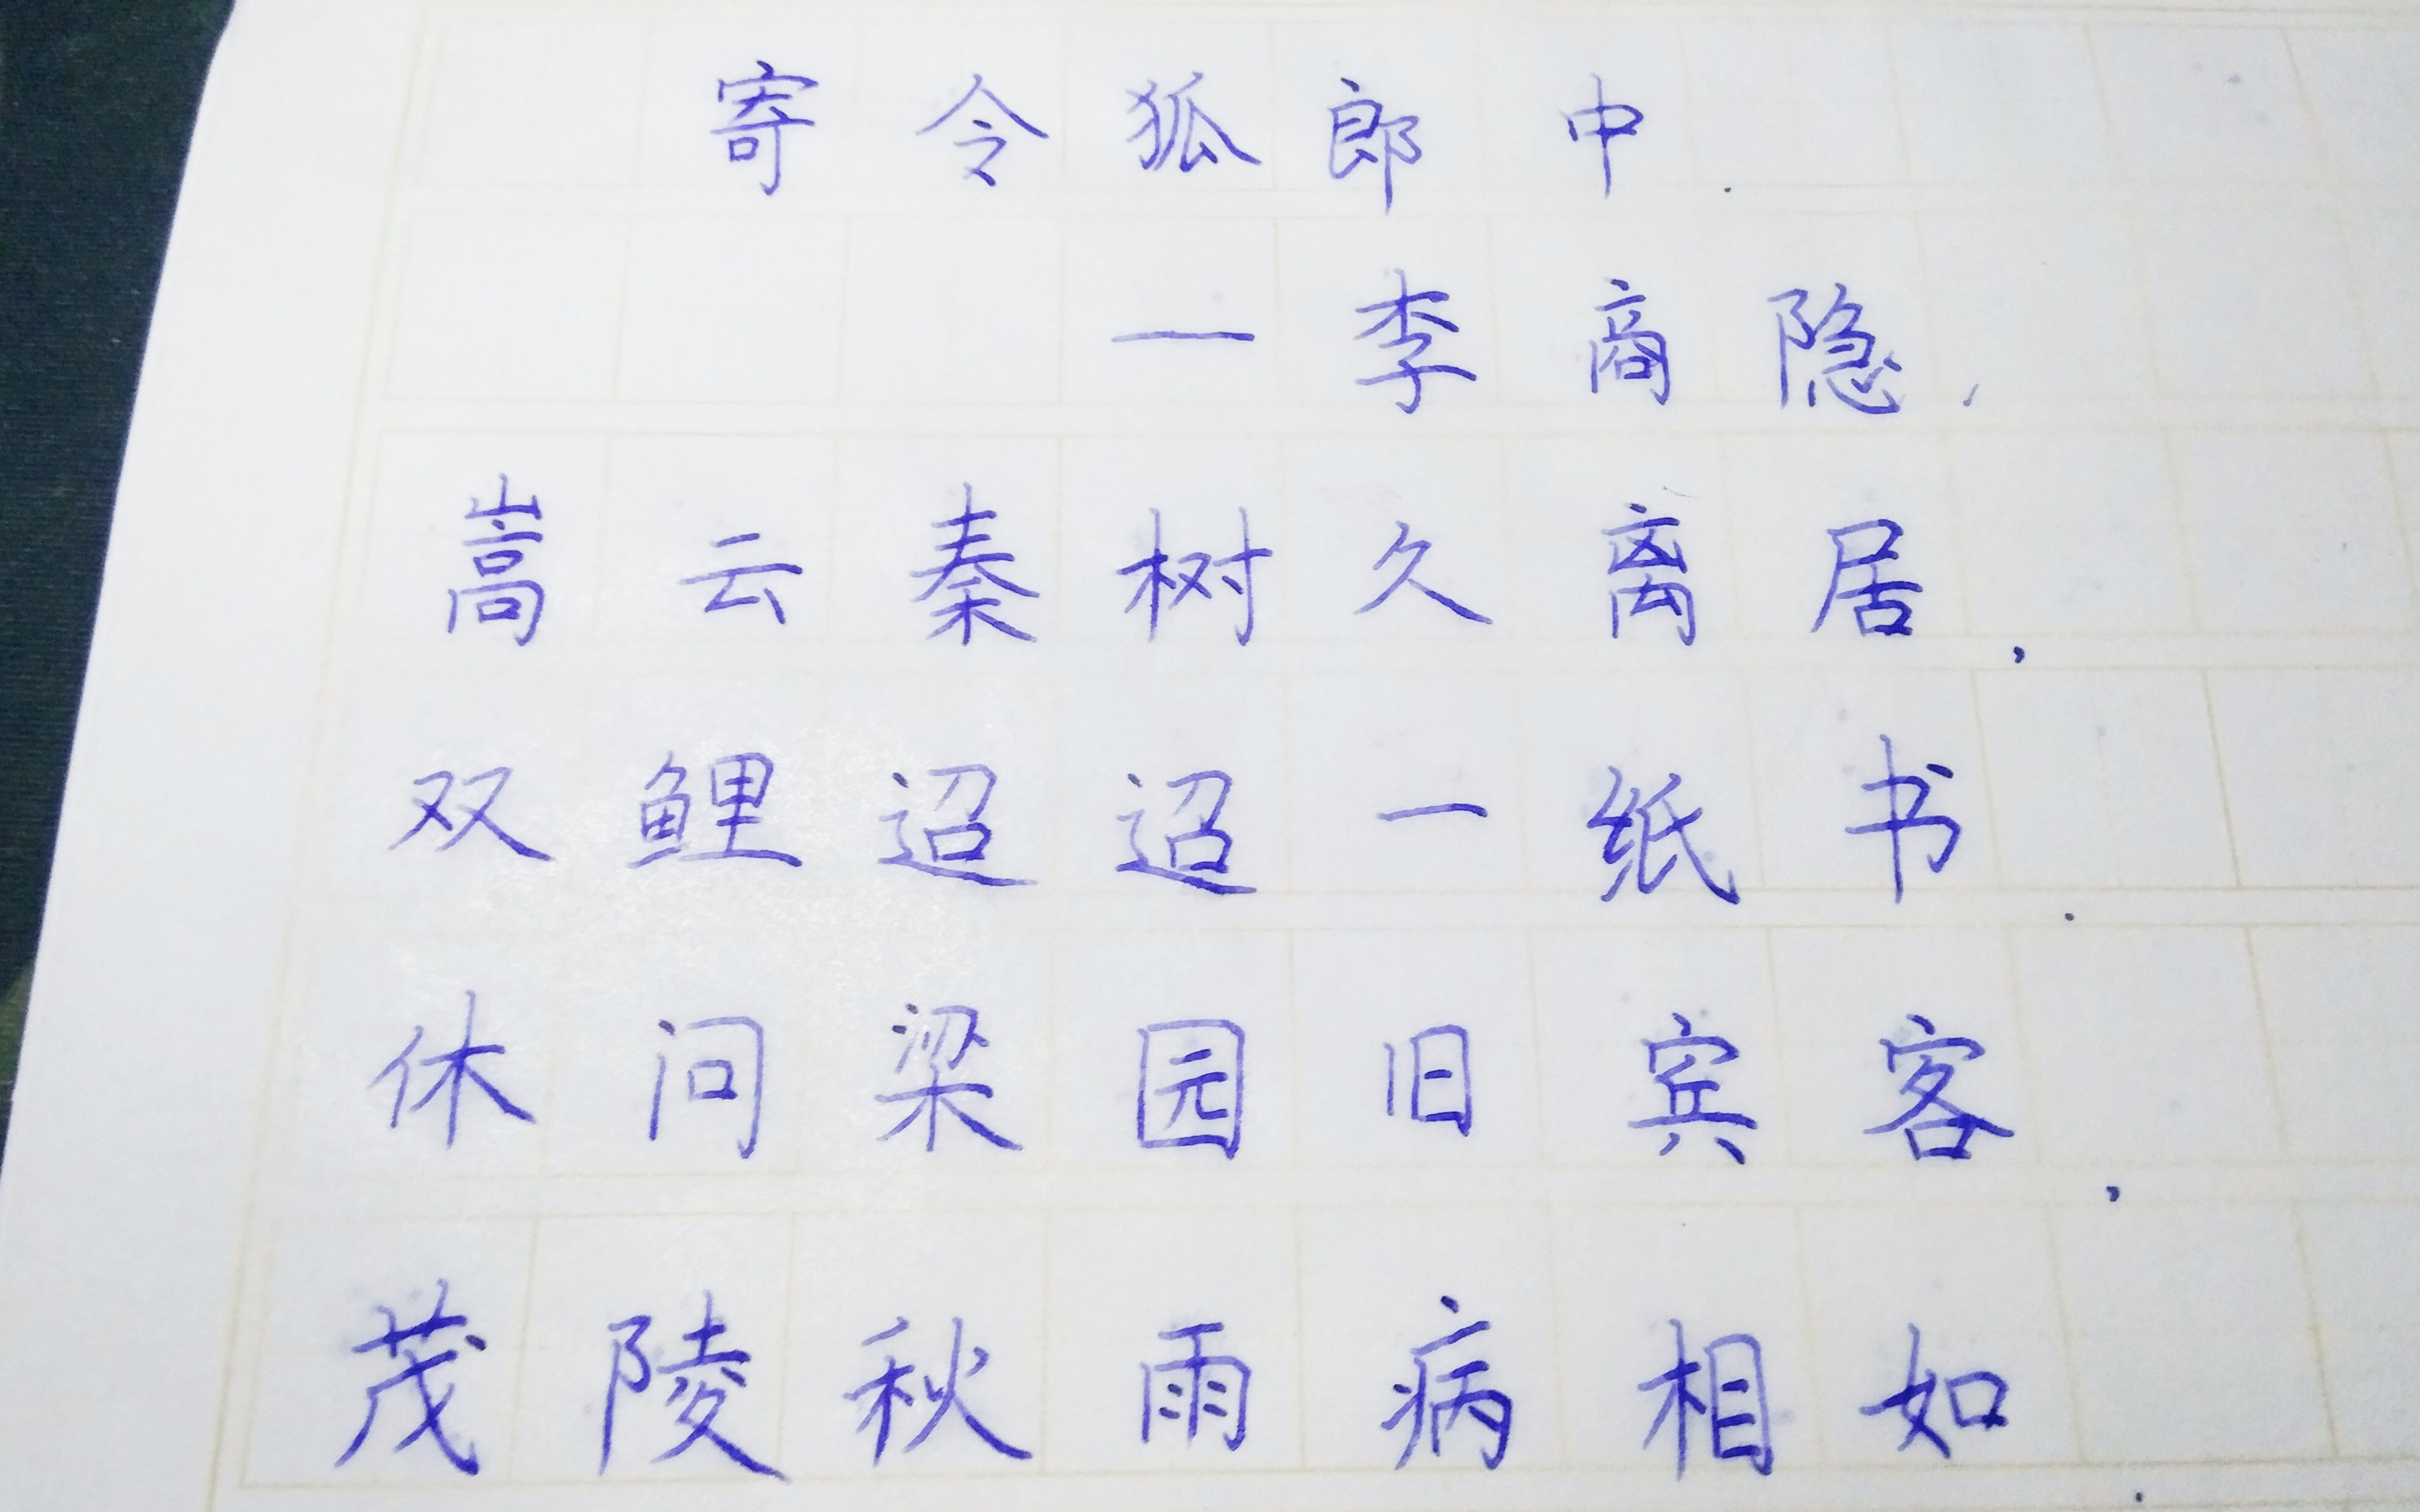 寄令狐郎中.
—李商隐.
嵩云秦树久离居,
双鲤迢迢一纸书.
休问梁园旧宾客,
茂陵秋雨病相如.